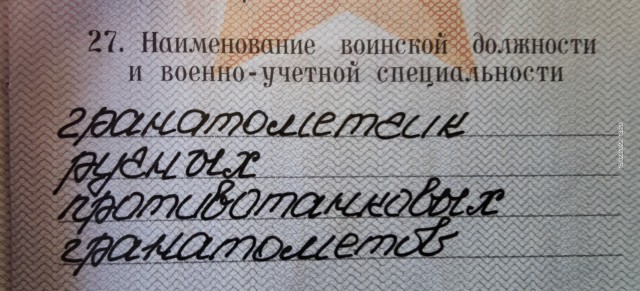 27. Наименование воинской должности
и военно-учетной специальности
гранатометчик
ручных
противотанковых
гранатометов